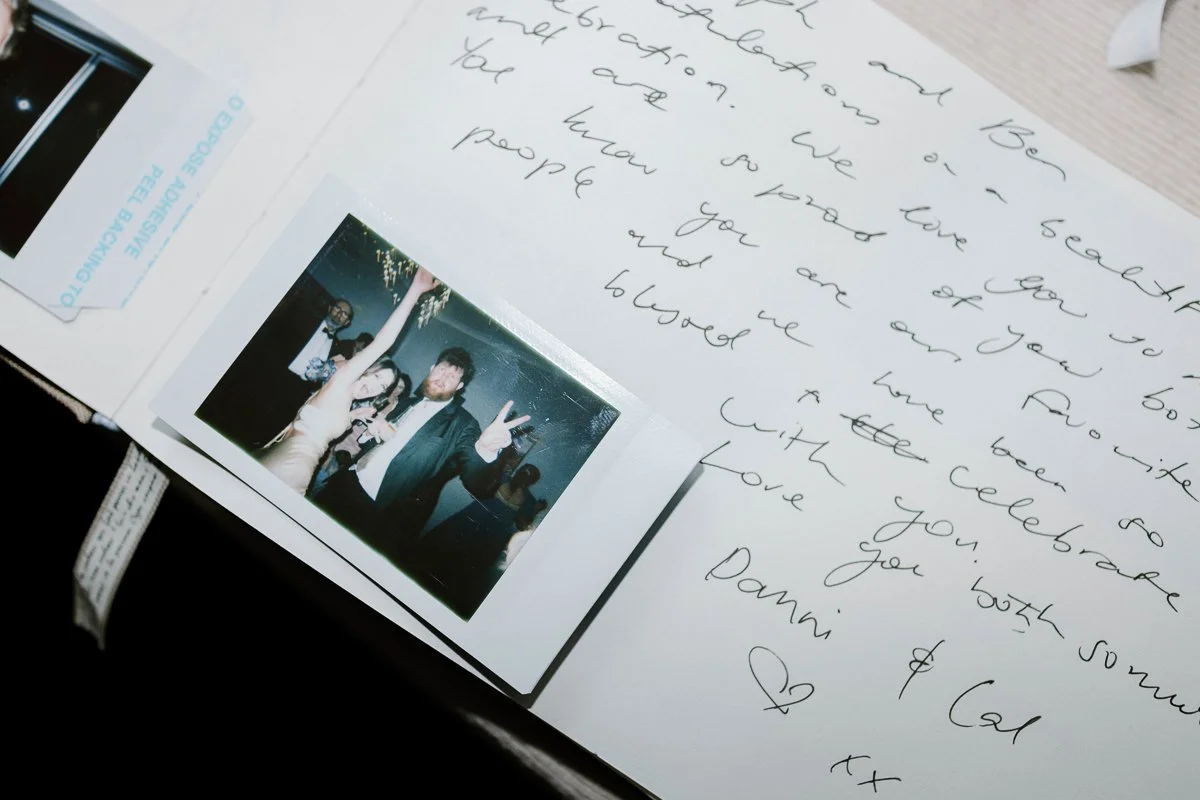 PEEL BACKING TO
EXPOSE ADHESIVE
and Ben
on a beautif
ebration. We love you so
and are so proud of you bo
You know you are our favourite
people and we have been so
blessed to celebrate
with you.
Love you both so mu
Danni & Cal
♡ xx